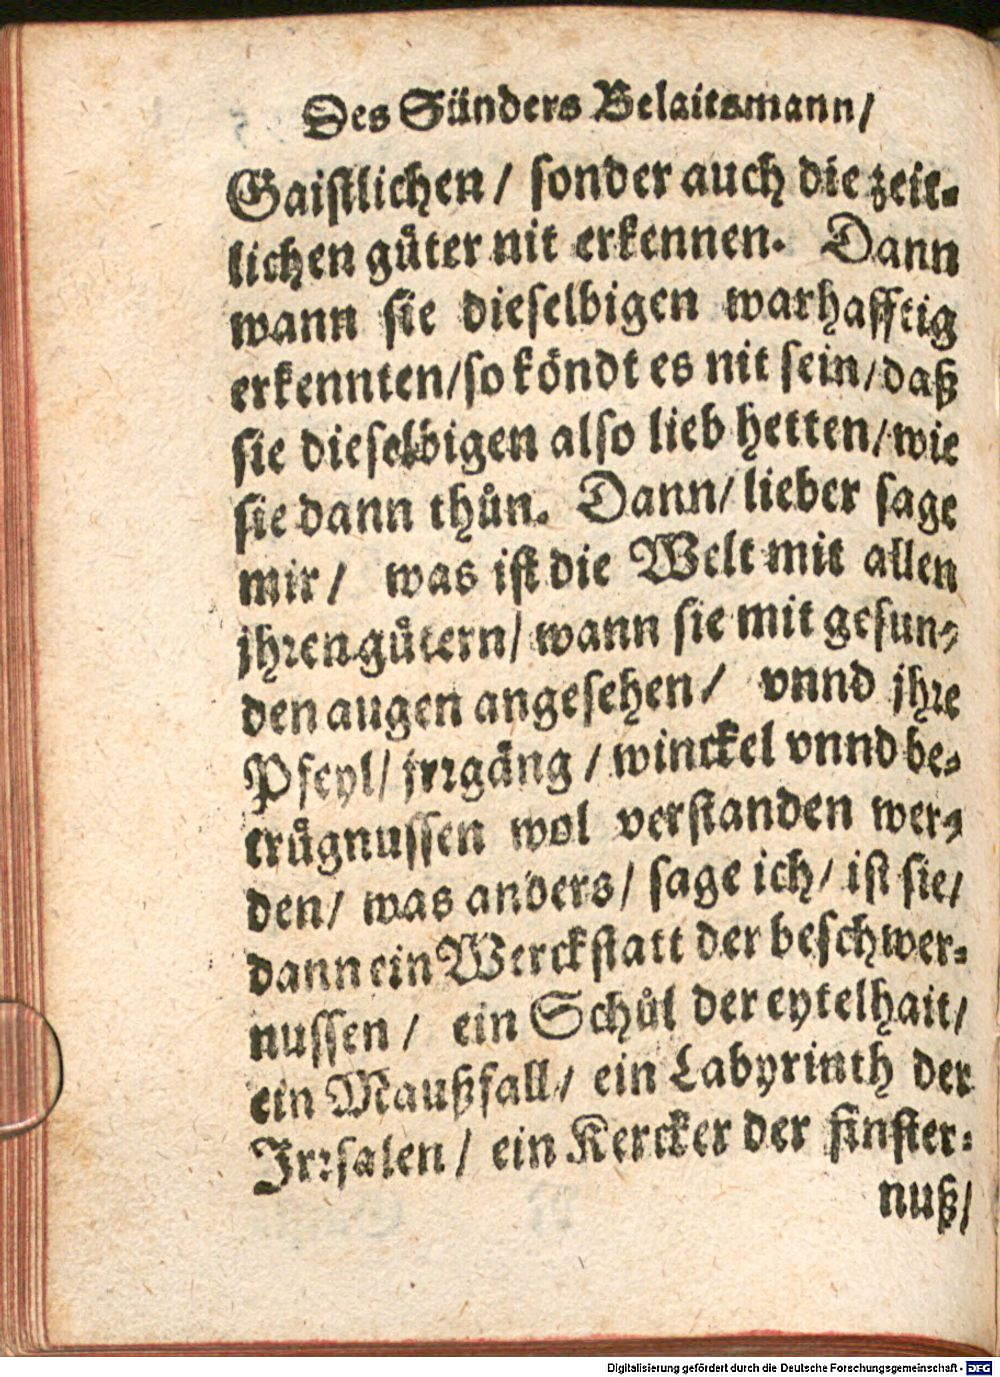 Des Sünders Belaitsmann/
Gaistlichen/ sonder auch die zeit-
lichen gůter nit erkennen. Dann
wann sie dieselbigen warhafftig
erkennten/so köndt es nit sein/daß
sie dieselbigen also lieb hetten/wie
sie dann thůn. Dann/lieber sage
mir/ was ist die Welt mit allen
jhren gůtern/ wann sie mit gesun-
den augen angesehen/ vnnd jhre
Pfeyl/ jrrgäng/winckel vnnd be-
trůgnussen wol verstanden wer-
den/ was anders/ sage ich/ ist sie/
dann ein Werckstatt der beschwer-
nussen/ ein Schůl der eytelhait/
ein Maußfall/ ein Labyrinth der
Irrsalen/ ein Kercker der finster-
nuß/
Digitalisierung gefördert durch die Deutsche Forschungsgemeinschaft - DFG